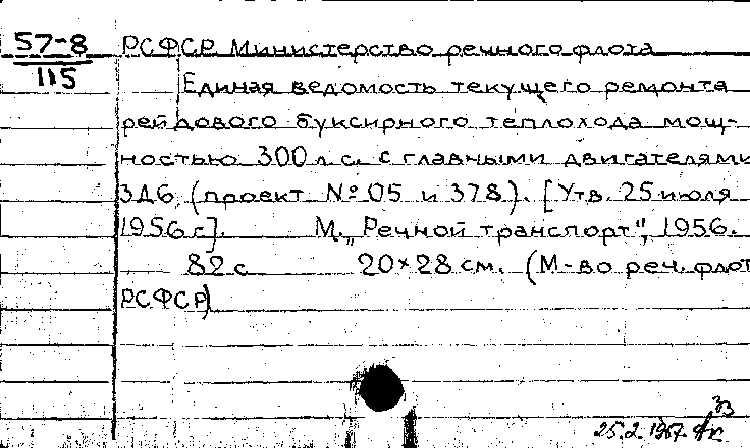 57-8
115
РСФСР. Министерство речного флота
Единая ведомость текущего ремонта
рейдового буксирного теплохода мощ-
ностью 300 л. с. с главными двигателями
3Д6 (проект № 05 и 378). [Утв. 25 июля
1956 г]. М., „Речной транспорт", 1956.
82 с 20×28 см. (М-во реч. флот
РСФСР)
25.2.1957